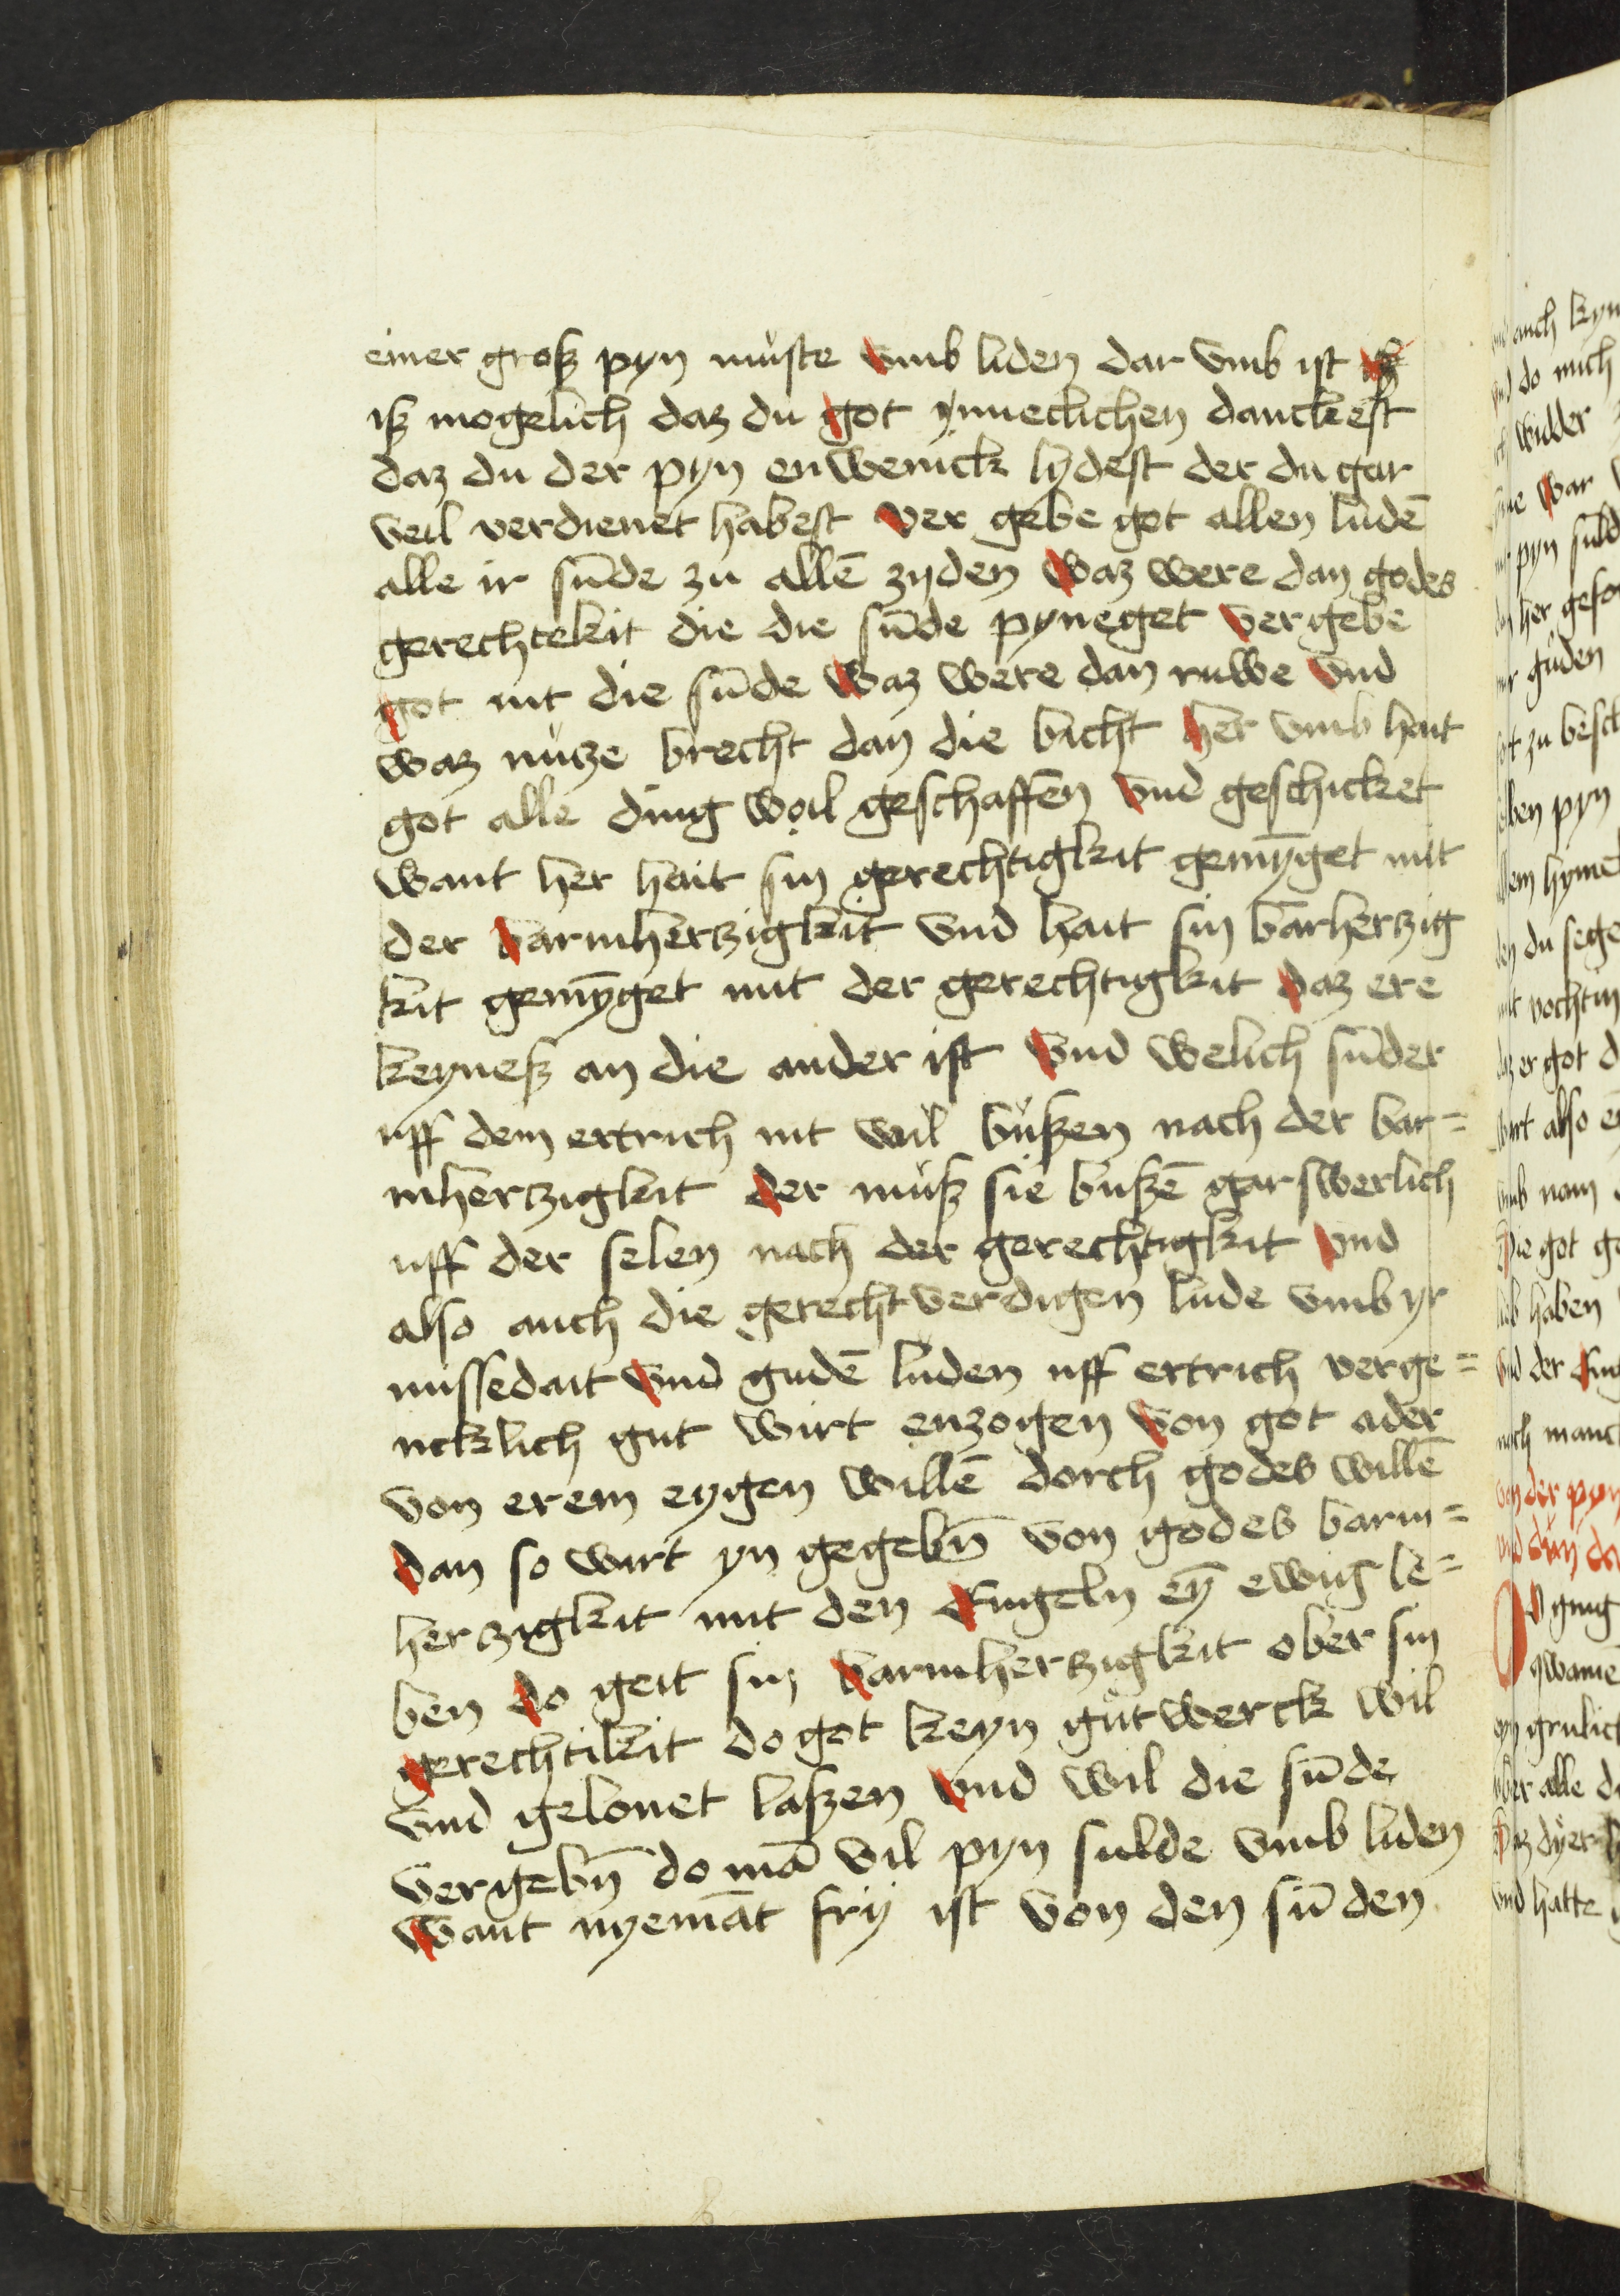 einer groß pyn müste vmb liden dar vmb ist
iß mogelich daz du got ynneclichen danckest
daz du der pyn enwenick lydest der du gar
veil verdienet habest Ver gebe got allen ludē
alle ir sūde zu allē zyden Waz were dan godes
gerechtekit die die sūde pyneget Vergebe
got nit die sūde Waz were dan ruwe Vnd
waz nütze brecht dan die bicht Her vmb hait
got alle ding woil geschaffen Vnd geschicket
want her hait sin gerechtigkit gemȳget mit
der barmhertzigkit vnd hait sin barhertzig
kit gemȳget mit der gerechtigkit Daz ere
keyneß an die ander ist Vnd welich sūder
uff dem ertrich nit wil büßen nach der bar=
mhertzigkit Der müß sie bußē gar swerlich
uff der selen nach der gerechtigkit Vnd
also auch die gerechtverdigen lude vmb yr
missedait Vnd gudē luden uff ertrich verge=
ncklich gut wirt enzogen Von got ader
von erem eygen willē dorch godes willē
Dan so wirt yn gegebn̄ von godes barm=
hertzigkit mit den Engeln eȳ ewig le=
ben Do geit sin barmhertzigkit ober sin
gerechtikit do got keyn güt werck wil
vnd gelonet laßen Vnd wil die sūde
vergebn̄ do mā vil pyn sulde vmb liden
Want nyemāt fry ist von den sūden
auch kyn
do mich
widder
war
pyn
her
guden
zu besch
pyn
hyme
du sege
er got d
also
nam
got ge
haben
der
manch
der pyn
ging
qwame
grulich
alle
vnd hatte